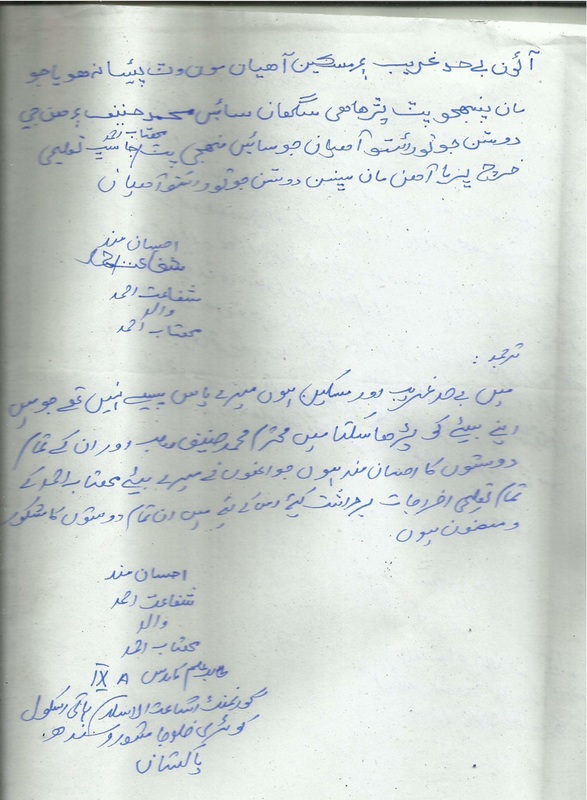 آئون بي حد غريب ۽ مسڪين آهيان مون وٽ پئسا نه هويا جو
مان پنهنجو پٽ پڙهائي سگهان سائين محمد حنيف ۽ هن جي
مهتاب احمد
دوستن جو ٿورائتو آهيان جو سائين منهنجي پٽ جا سڀ تعليمي
خرچ ڀريا آهن مان سڀني دوستن جو ٿورائتو آهيان
احسان مند
شفاعت احمد
شفاعت احمد
والد
مهتاب احمد
ترجمہ :
میں بے حد غریب اور مسکین ہوں میرے پاس پیسے نہیں تھے جو میں
اپنے بیٹے کو پڑھا سکتا میں محترم محمد حنیف صاحب اور ان کے تمام
دوستوں کا احسان مند ہوں جو انھوں نے میرے بیٹے مہتاب احمد کے
تمام تعلیمی اخراجات برداشت کیئے اس کے لئے میں ان تمام دوستوں کا مشکور
و ممنون ہوں
احسان مند
شفاعت احمد
والد
مہتاب احمد
طالب علم کلاس IX A
گورنمنٹ اشاعت الاسلام ہائی اسکول
کوٹری ضلع جامشورو سندھ.
پاکستان